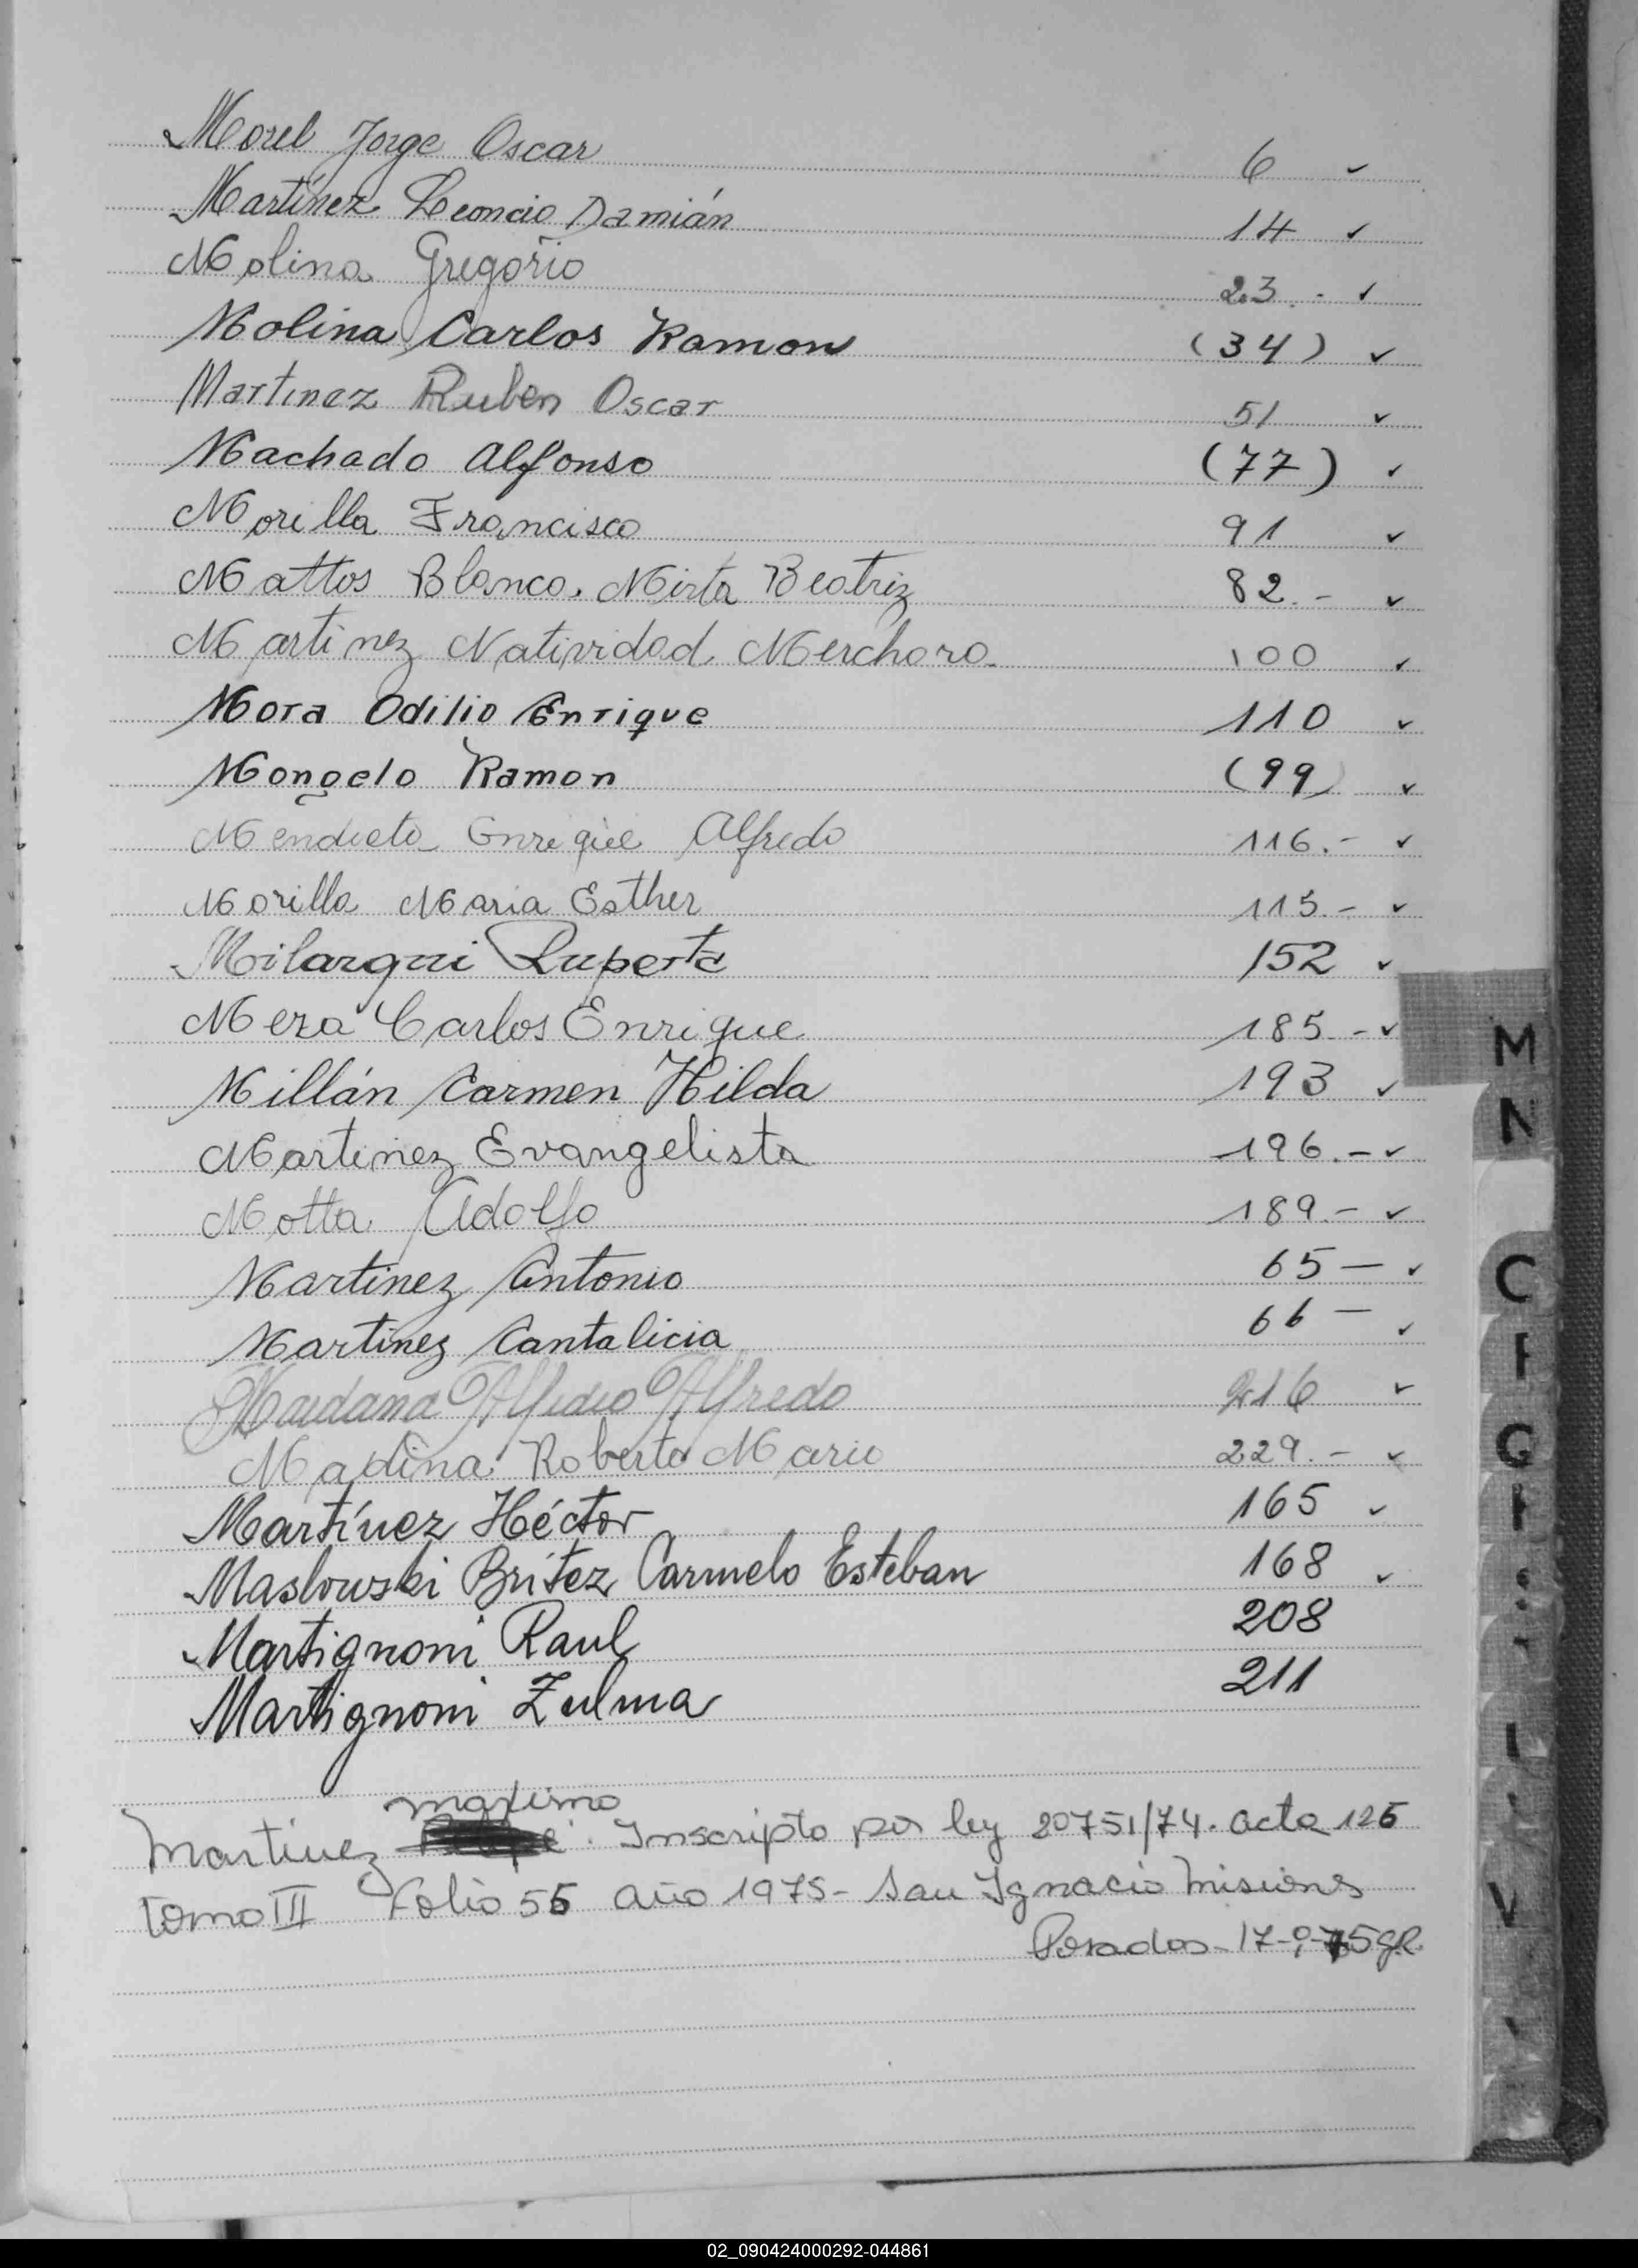 Morel Jorge Oscar 6 ✓
Martínez Leoncio Damián 14 ✓
Molina Gregorio 23.- ✓
Molina Carlos Ramon (34) ✓
Martinez Ruben Oscar 51 ✓
Machado Alfonso (77) ✓
Morilla Francisco 91 ✓
Mattos Blanco. Mirta Beatriz 82.- ✓
Martinez Natividad. Merchora. 100 ✓
Mora Odilio Enrique 110 ✓
Mongelo Ramon (99) ✓
Mendieta Enrique Alfredo 116.- ✓
Morilla Maria Esther 115.- ✓
Milarqui Ruperta 152 ✓
Meza Carlos Enrique 185.- ✓
Millán Carmen Hilda 193 ✓
Martinez Evangelista 196.- ✓
Motta Adolfo 189.- ✓
Martinez Antonio 65 — ✓
Martinez Cantalicia 66 — ✓
Maidana Alfredo 216 ✓
Madina Roberto Mario 229.- ✓
Martínez Héctor 165 ✓
Maslowski Brítez Carmelo Esteban 168 ✓
Martignoni Raul 208
Martignoni Zulma 211
maximo
Martinez. Inscripto por ley 20751/74. acta 126
tomo III Folio 56 año 1975- San Ignacio Misiones
Posadas-17-
M
N
C
F
G
I
V
02_090424000292-044861